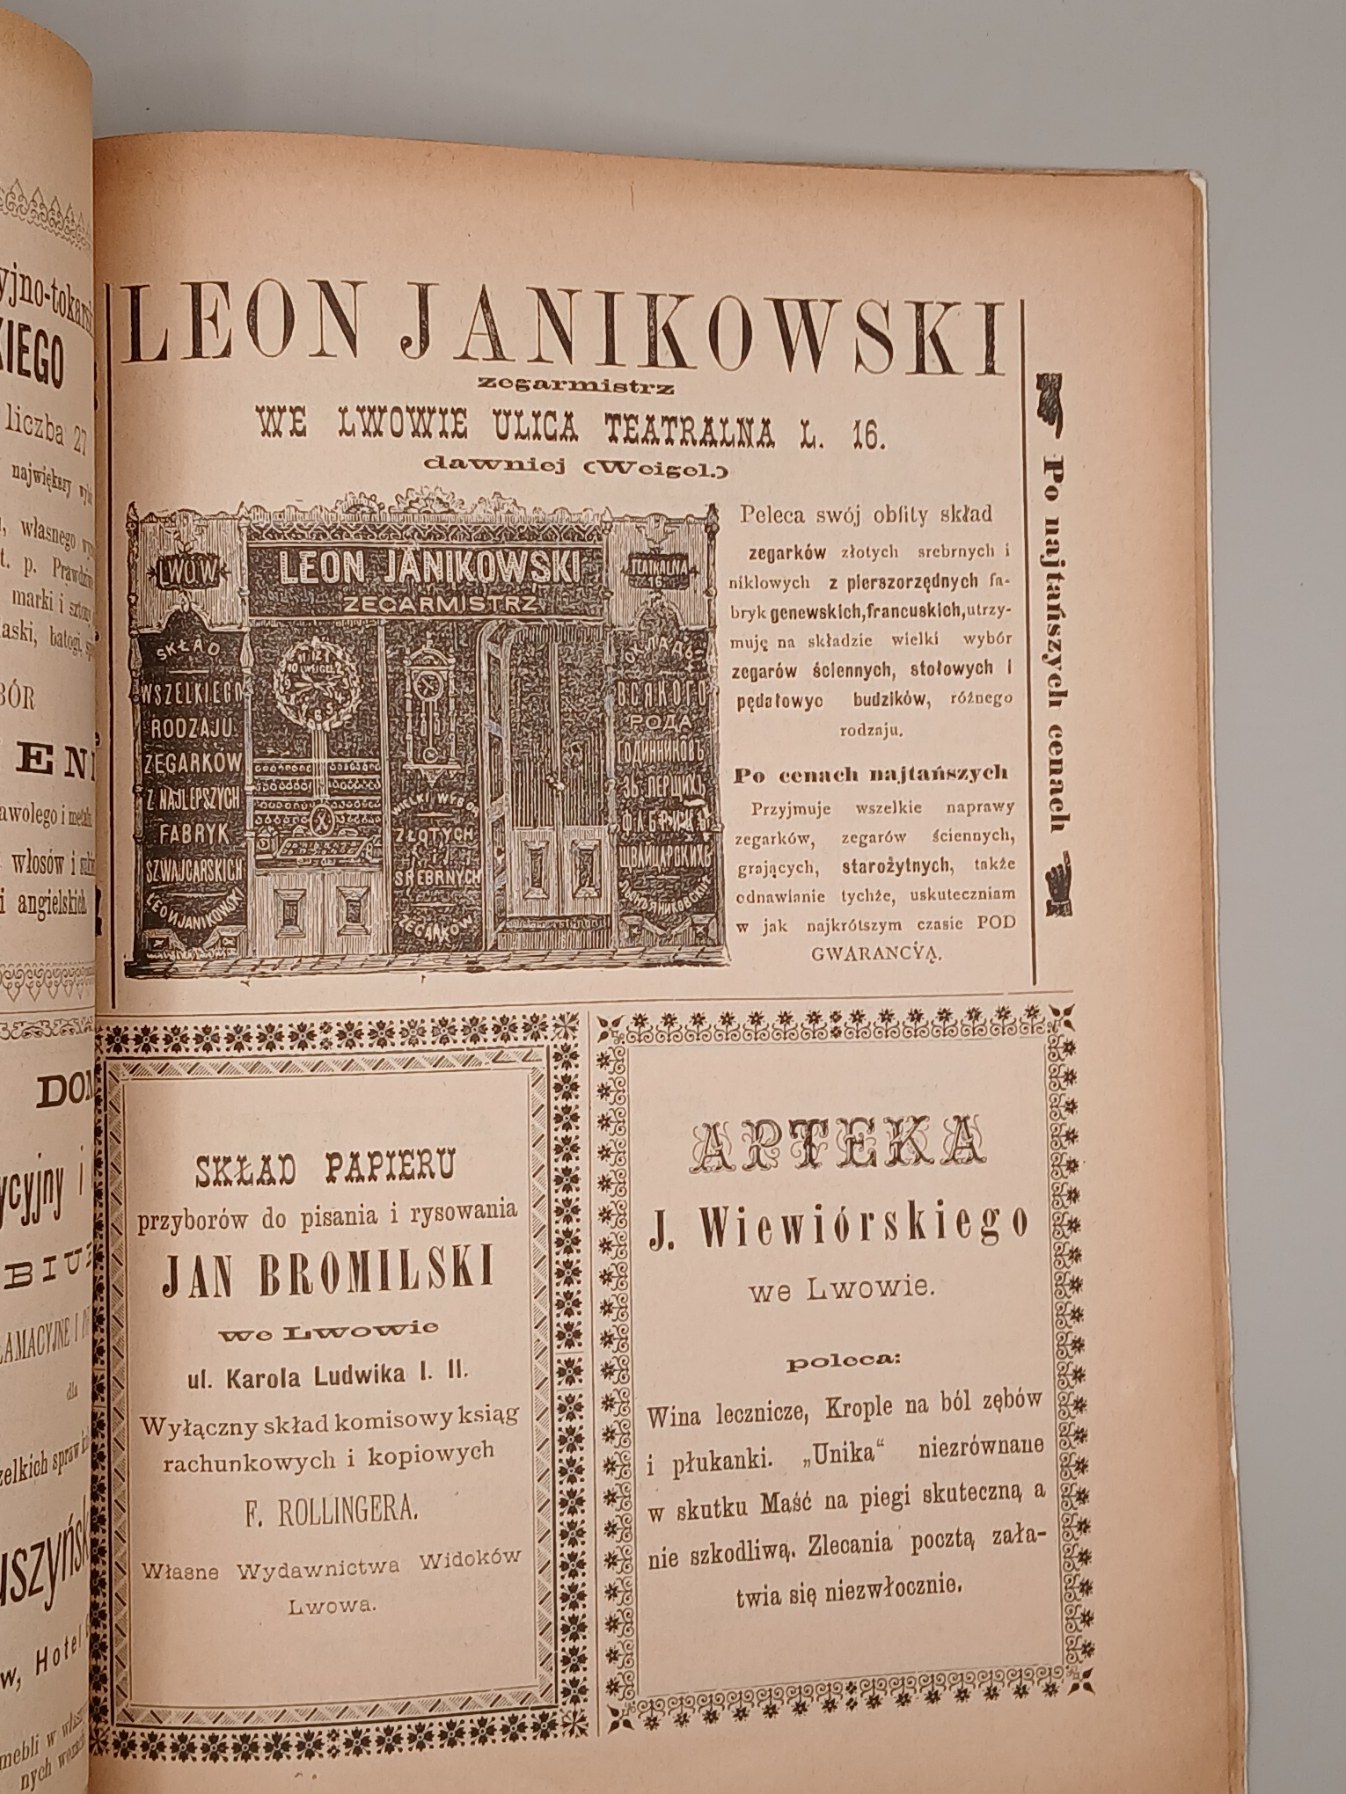 LEON JANIKOWSKI
zegarmistrz
WE LWOWIE ULICA TEATRALNA L. 16.
dawniej (Weigel.)
LWÓW
LEON JANIKOWSKI
ZEGARMISTRZ
TEATRALNA
16
SKŁAD
WSZELKIEGO
RODZAJU
ZEGARKÓW
Z NAJLEPSZYCH
FABRYK
SZWAJCARSKICH
LEON JANIKOWSKI
WIELKI WYBÓR
ZŁOTYCH
SREBRNYCH
ZEGARKÓW
СКЛАДЪ
ВСЯКОГО
РОДА
ГОДИННИКОВЪ
ЗЪ ПЕРШИХЪ
ФАБРИКЪ
ШВАЙЦАРСКИХЪ
Peleca swój obfity skład
zegarków złotych srebrnych i
niklowych z pierszorzędnych fa-
bryk genewskich,francuskich,utrzy-
muję na składzie wielki wybór
zegarów ściennych, stołowych i
pędałowyc budzików, różnego
rodzaju.
Po cenach najtańszych
Przyjmuje wszelkie naprawy
zegarków, zegarów ściennych,
grających, starożytnych, także
odnawianie tychże, uskuteczniam
w jak najkrótszym czasie POD
GWARANCYĄ.
Po najtańszych cenach
SKŁAD PAPIERU
przyborów do pisania i rysowania
JAN BROMILSKI
we Lwowie
ul. Karola Ludwika l. II.
Wyłączny skład komisowy ksiąg
rachunkowych i kopiowych
F. ROLLINGERA.
Własne Wydawnictwa Widoków
Lwowa.
APTEKA
J. Wiewiórskiego
we Lwowie.
poleca:
Wina lecznicze, Krople na ból zębów
i płukanki. „Unika“ niezrównane
w skutku Maść na piegi skuteczną a
nie szkodliwą. Zlecania pocztą zała-
twia się niezwłocznie.
KIEGO
liczba 27
największy
własnego
t. p.
marki i
laski, batogi,
BÓR
włosów i
i angielskich
BIU
dla
Hotel
mebli w